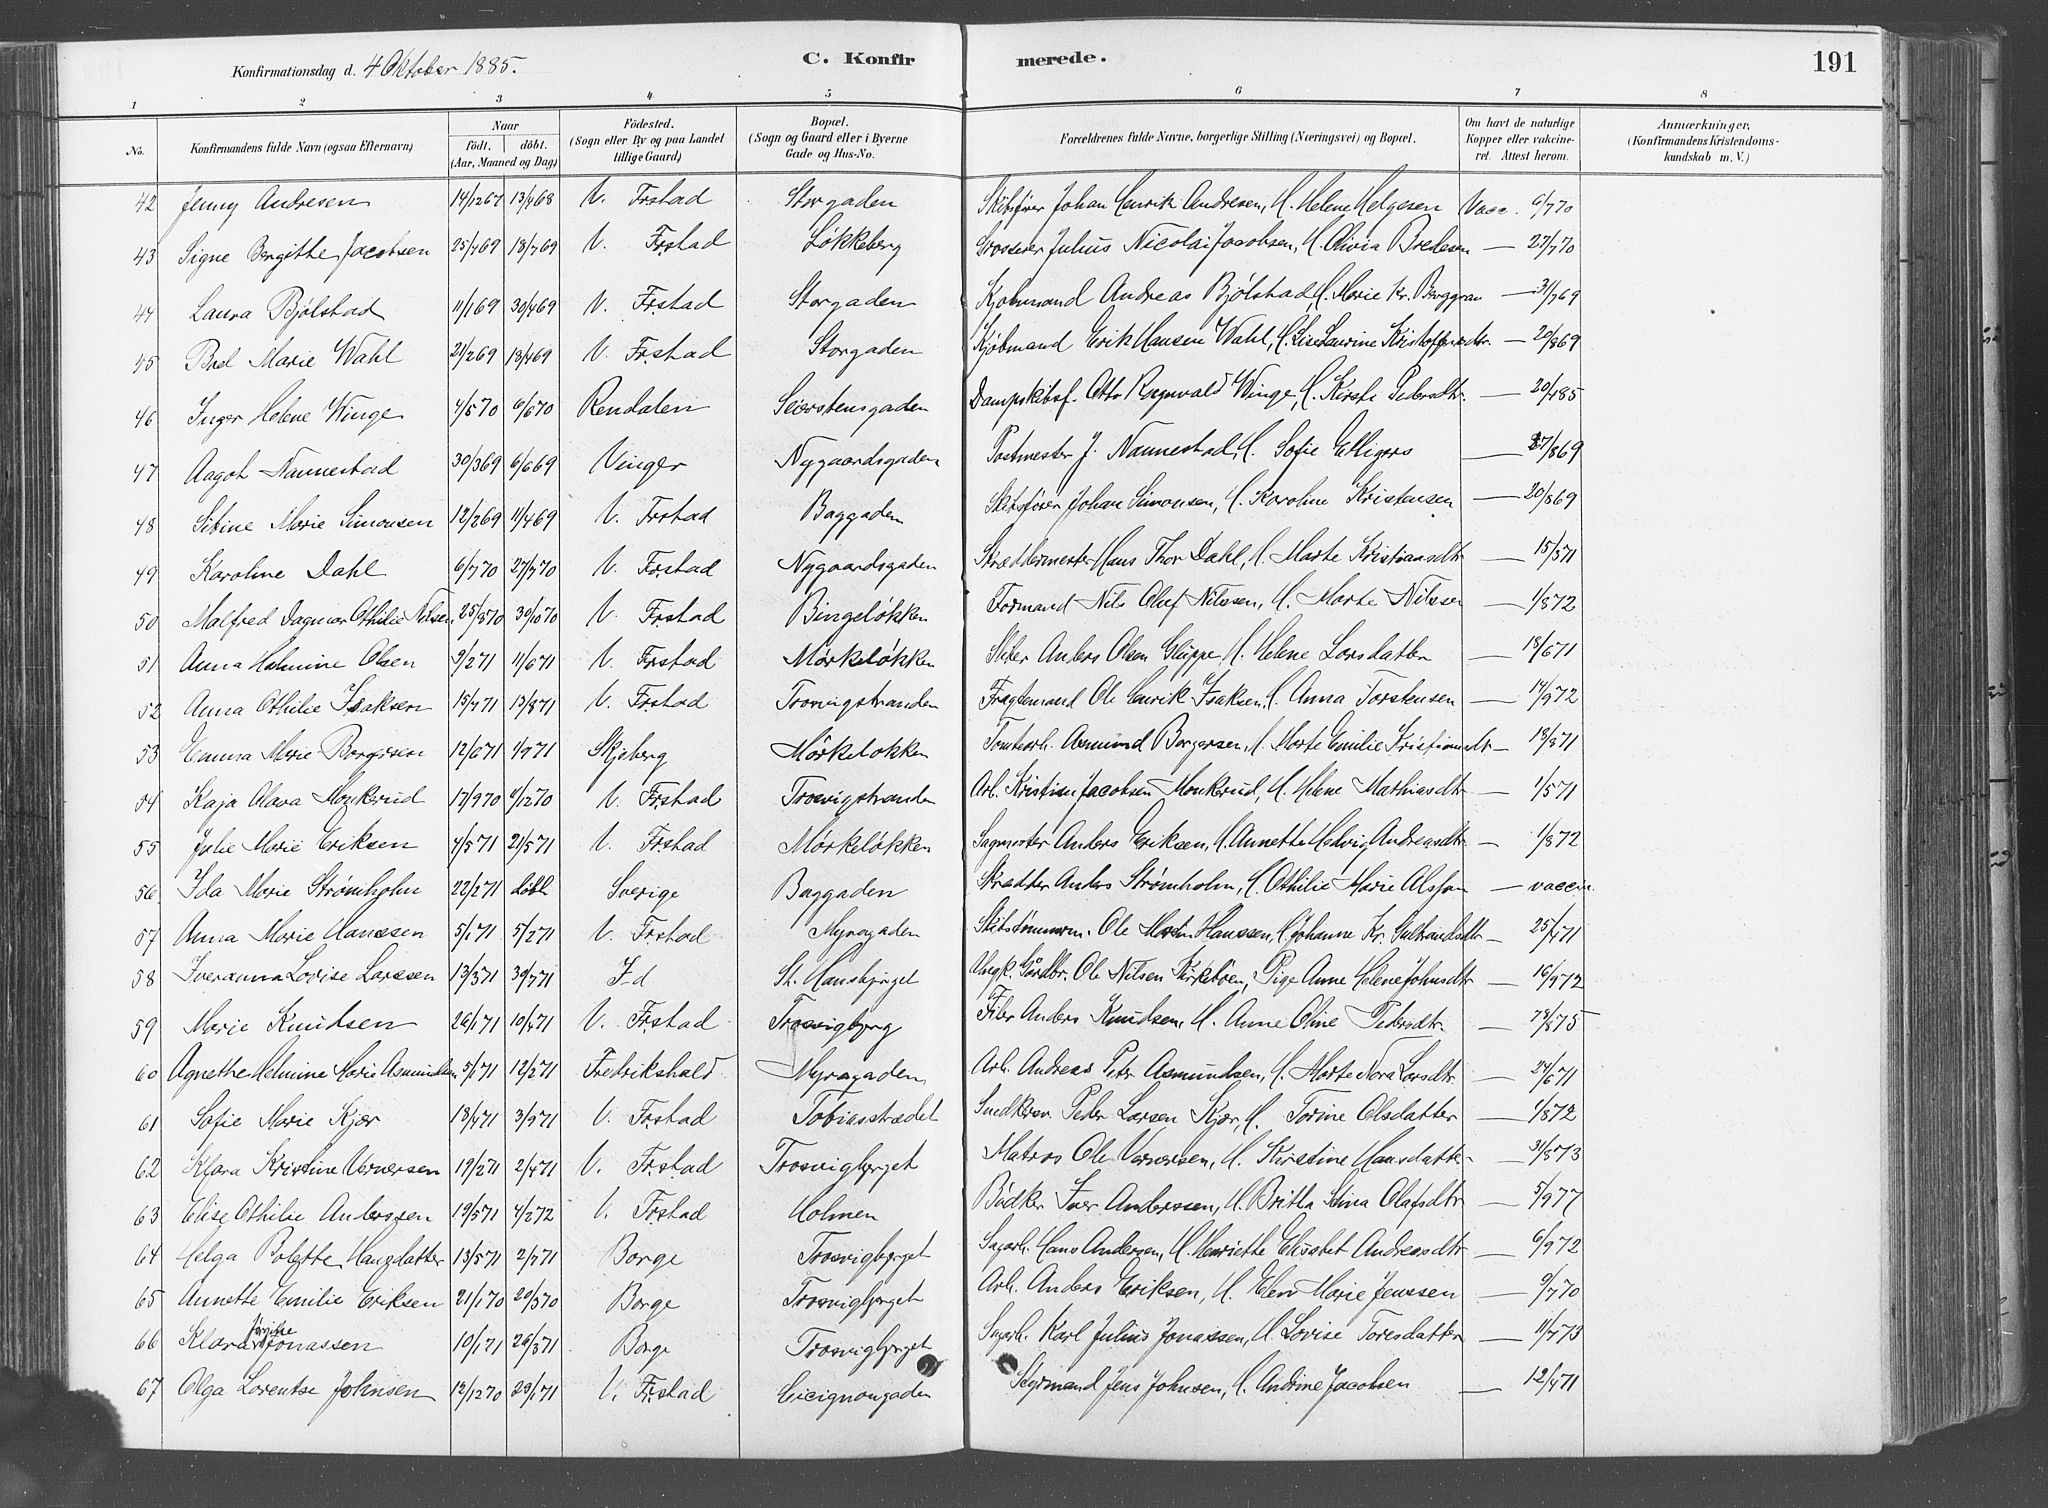 Konfirmationsdag d. 4 Oktober 1885. C. Konfirmerede. 191
1 2 3 4 5 6 7 8
No. Konfirmandens fulde Navn (ogsaa Efternavn) Naar født. døbt. (Aar, Maaned og Dag) Fødested. (Sogn eller By og paa Landet tillige Gaard) Bopæl. (Sogn og Gaard eller i Byerne Gade og Hus-No. Forældrenes fulde Navne, borgerlige Stilling (Næringsvei) og Bopæl. Om havt de naturlige Kopper eller vakcineret. Attest herom. Anmærkninger, (Konfirmandens Kristendomskundskab m. V.)
42 Jenny Andresen 14/12 67 13/4 68 V. Frstad Storgaden Skibsfører Johan Henrik Andresen, H. Helene Helgesen Vacc. 6/7 70
43 Signe Bergithe Jacobsen 25/4 69 18/7 69 V. Frstad Løkkeberg Grosserer Julius Nicolai Jacobsen, H. Olivia Bredesen — 27/7 70
44 Laura Bjølstad 11/1 69 30/4 69 V. Frstad Storgaden Kjøbmand Andreas Bjølstad, H. Marie Kr. Berggran — 31/7 69
45 Bred Marie Wahl 21/2 69 18/4 69 V. Frstad Storgaden Kjøbmand Erik Hansen Wahl, H. Lise Laurine — 20/8 69
46 Inger Helene Winge 4/5 70 6/6 70 Rendalen Seierstensgaden Dampskibsf. Otto Rognvald Winge, H. Kirste Pedersdtr. — 20/4 85
47 Aagot Nannestad 30/3 69 6/6 69 Vinger Nygaardsgaden Postmester J. Nannestad, H. Sofie Elligers — 27/8 69
48 Sibine Marie Simonsen 12/2 69 11/4 69 V. Frstad Baggaden Skibsfører Johan Simonsen, H. Karoline Kristensen — 20/8 69
49 Karoline Dahl 6/7 70 27/7 70 V. Frstad Nygaardsgaden Skræddermester Hans Thor Dahl, H. Marte Kristiansdtr — 15/5 71
50 Malfred Dagmar Othilie Nilsen 25/8 70 30/10 70 V. Frstad Bingeløkken Formand Nils Oluf Nilssen, H. Marte Nilssen — 1/8 72
51 Anna Helmine Olsen 9/2 71 11/6 71 V. Frstad Mørkeløkken Anders Olsen Glippe, H. Helene Larsdatter — 18/6 71
52 Anna Othilie Isaksen 15/4 71 13/8 71 V. Frstad Trosvigstranden Fragtemand Ole Henrik Isaksen, H. Anna Torstensen — 14/9 72
53 Emma Marie Borgersen 12/6 71 1/9 71 Skjeberg Mørkeløkken Tomtearb. Asmund Borgersen, H. Marte Emilie Kristiansdtr — 18/8 71
54 Kaja Olava Monkerud 17/9 70 4/12 70 V. Frstad Trosvigstranden Arb. Kristian Jacobsen Monkerud, H. Helene Mathiasdtr — 1/5 71
55 Julie Marie Eriksen 4/5 71 21/5 71 V. Frstad Mørkeløkken Sagmester Anders Eriksen, H. Annette Hedvig Andreasdtr — 1/8 72
56 Ida Marie Strømholm 22/2 71 døbt Sverige Baggaden Skrædder Anders Strømholm, H. Othilie Marie — vaccin.
57 Anna Marie Hanssen 5/1 71 5/2 71 V. Frstad Myragaden Skibstømmerm. Ole Martin Hanssen, H. Johanne Kr. Gulbrandsdtr — 25/4 71
58 Iveranna Lovise Larssen 13/3 71 30/7 71 Id St. Hansbjrget Ungk. Gårdbr. Ole Nilsen Kirkebøen, Pige Anne Helene Johnsdtr — 16/9 72
59 Marie Knudsen 26/1 71 10/4 71 V. Frstad Trosvigbjerg Filer Anders Knudsen, H. Anne Oline Pedersdtr. — /8 75
60 Agnethe Helmine Marie Asmundsen 5/1 71 12/2 71 Fredrikshald Myragaden Arb. Andreas Petr Asmundsen, H. Marte Nora Larsdtr. — 24/6 71
61 Sofie Marie Kjær 18/4 71 3/9 71 V. Frstad Tobiasstrædet Peder Larsen Kjær, H. Torine Olsdatter — 1/8 72
62 Klara Kristine Vernersen 19/2 71 2/4 71 V. Frstad Trosvigbjrget Matros Ole Vernersen, H. Kristine Hansdatter — 31/8 73
63 Elise Othilie Anderssen 19/5 71 4/2 72 V. Frstad Holmen Bødker Iver Anderssen, H. Britta Stina Olafsdtr — 5/9 77
64 Helga Bolette Hansdatter 13/5 71 2/7 71 Borge Trosvigbjrget Sagarb. Hans Andersen, H. Henriette Elisabet Andreasdtr — 6/9 72
65 Annette Emilie Eriksen 21/1 70 20/3 70 Borge Trosvigbjrget Arb. Anders Eriksen, H. Elen Marie Jenssen — 9/7 70
66 Klara Jørgine Jonassen 10/1 71 26/3 71 Borge Trosvigbjrget Sagarb. Karl Julius Jonassen, H. Lovise Toresdatter — 11/7 73
67 Olga Lorentse Johnsen 12/12 70 29/1 71 V. Frstad Cicignongaden Styrmand Jens Johnsen, H. Andrine Jacobsen — 12/4 71